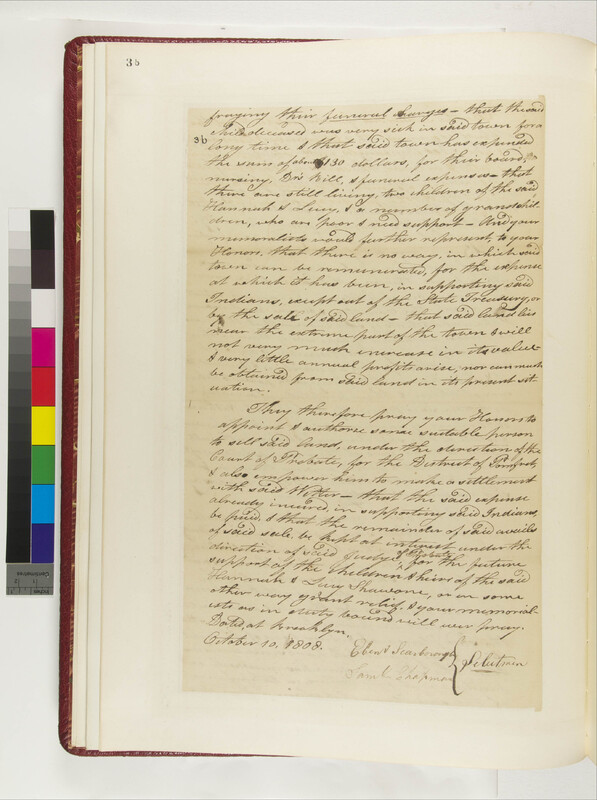 36
fraying their funeral charges – that the said
36
Child deceased was very sick in said town for a
long time & that said town has expended
the sum of about 130 dollars, for their board,
nursing, Drs Bill, & funeral expenses – that
there are still living, two children of the said
Hannah & Lucy, & a number of grandchil
dren, who are poor & need support – And your
memorialists would further represent, to your
Honors, that there is no way, in which said
town can be remunerated, for the expense
at which it has been, in supporting said
Indians, except out of the State Treasury, or
by the sale of said land – that said land lies
near the extreme part of the town & will
not very much increase in its value
& very little annual profits arise, nor can much
be obtained from said land in its present sit
uation.
They therefore pray your Honors to
appoint & authorise some suitable person
to sell said land, under the direction of the
Court of Probate, for the District of Pomfret,
& also empower him to make a settlement
with said – that the said expense
already incured, in supporting said Indians,
be paid, & that the remainder of said avails
of said sale be kept at interest under the
direction of said Judge of Probate for the future
support of the children & heirs of the said
Hannah & Lucy, or in some
other way grant relief, & your memorial-
ists as in duty bound will ever pray.
Dated, at Brooklyn,
October 10, 1808.
Ebenr Scarborough
Saml Chapman
Selectmen